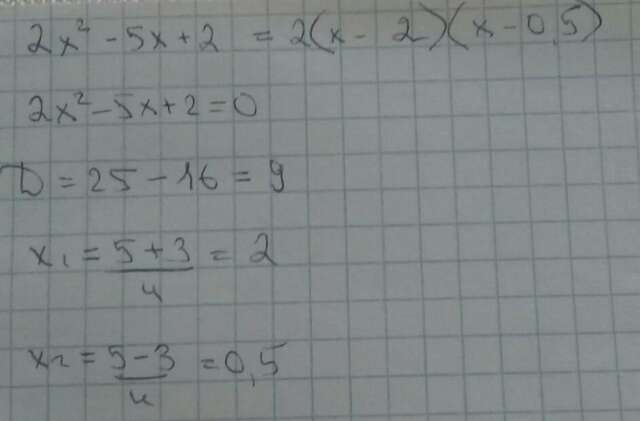 2x² - 5x + 2 = 2(x - 2)(x - 0,5)
2x² - 5x + 2 = 0
D = 25 - 16 = 9
x₁ = (5 + 3)/4 = 2
x₂ = (5 - 3)/4 = 0,5